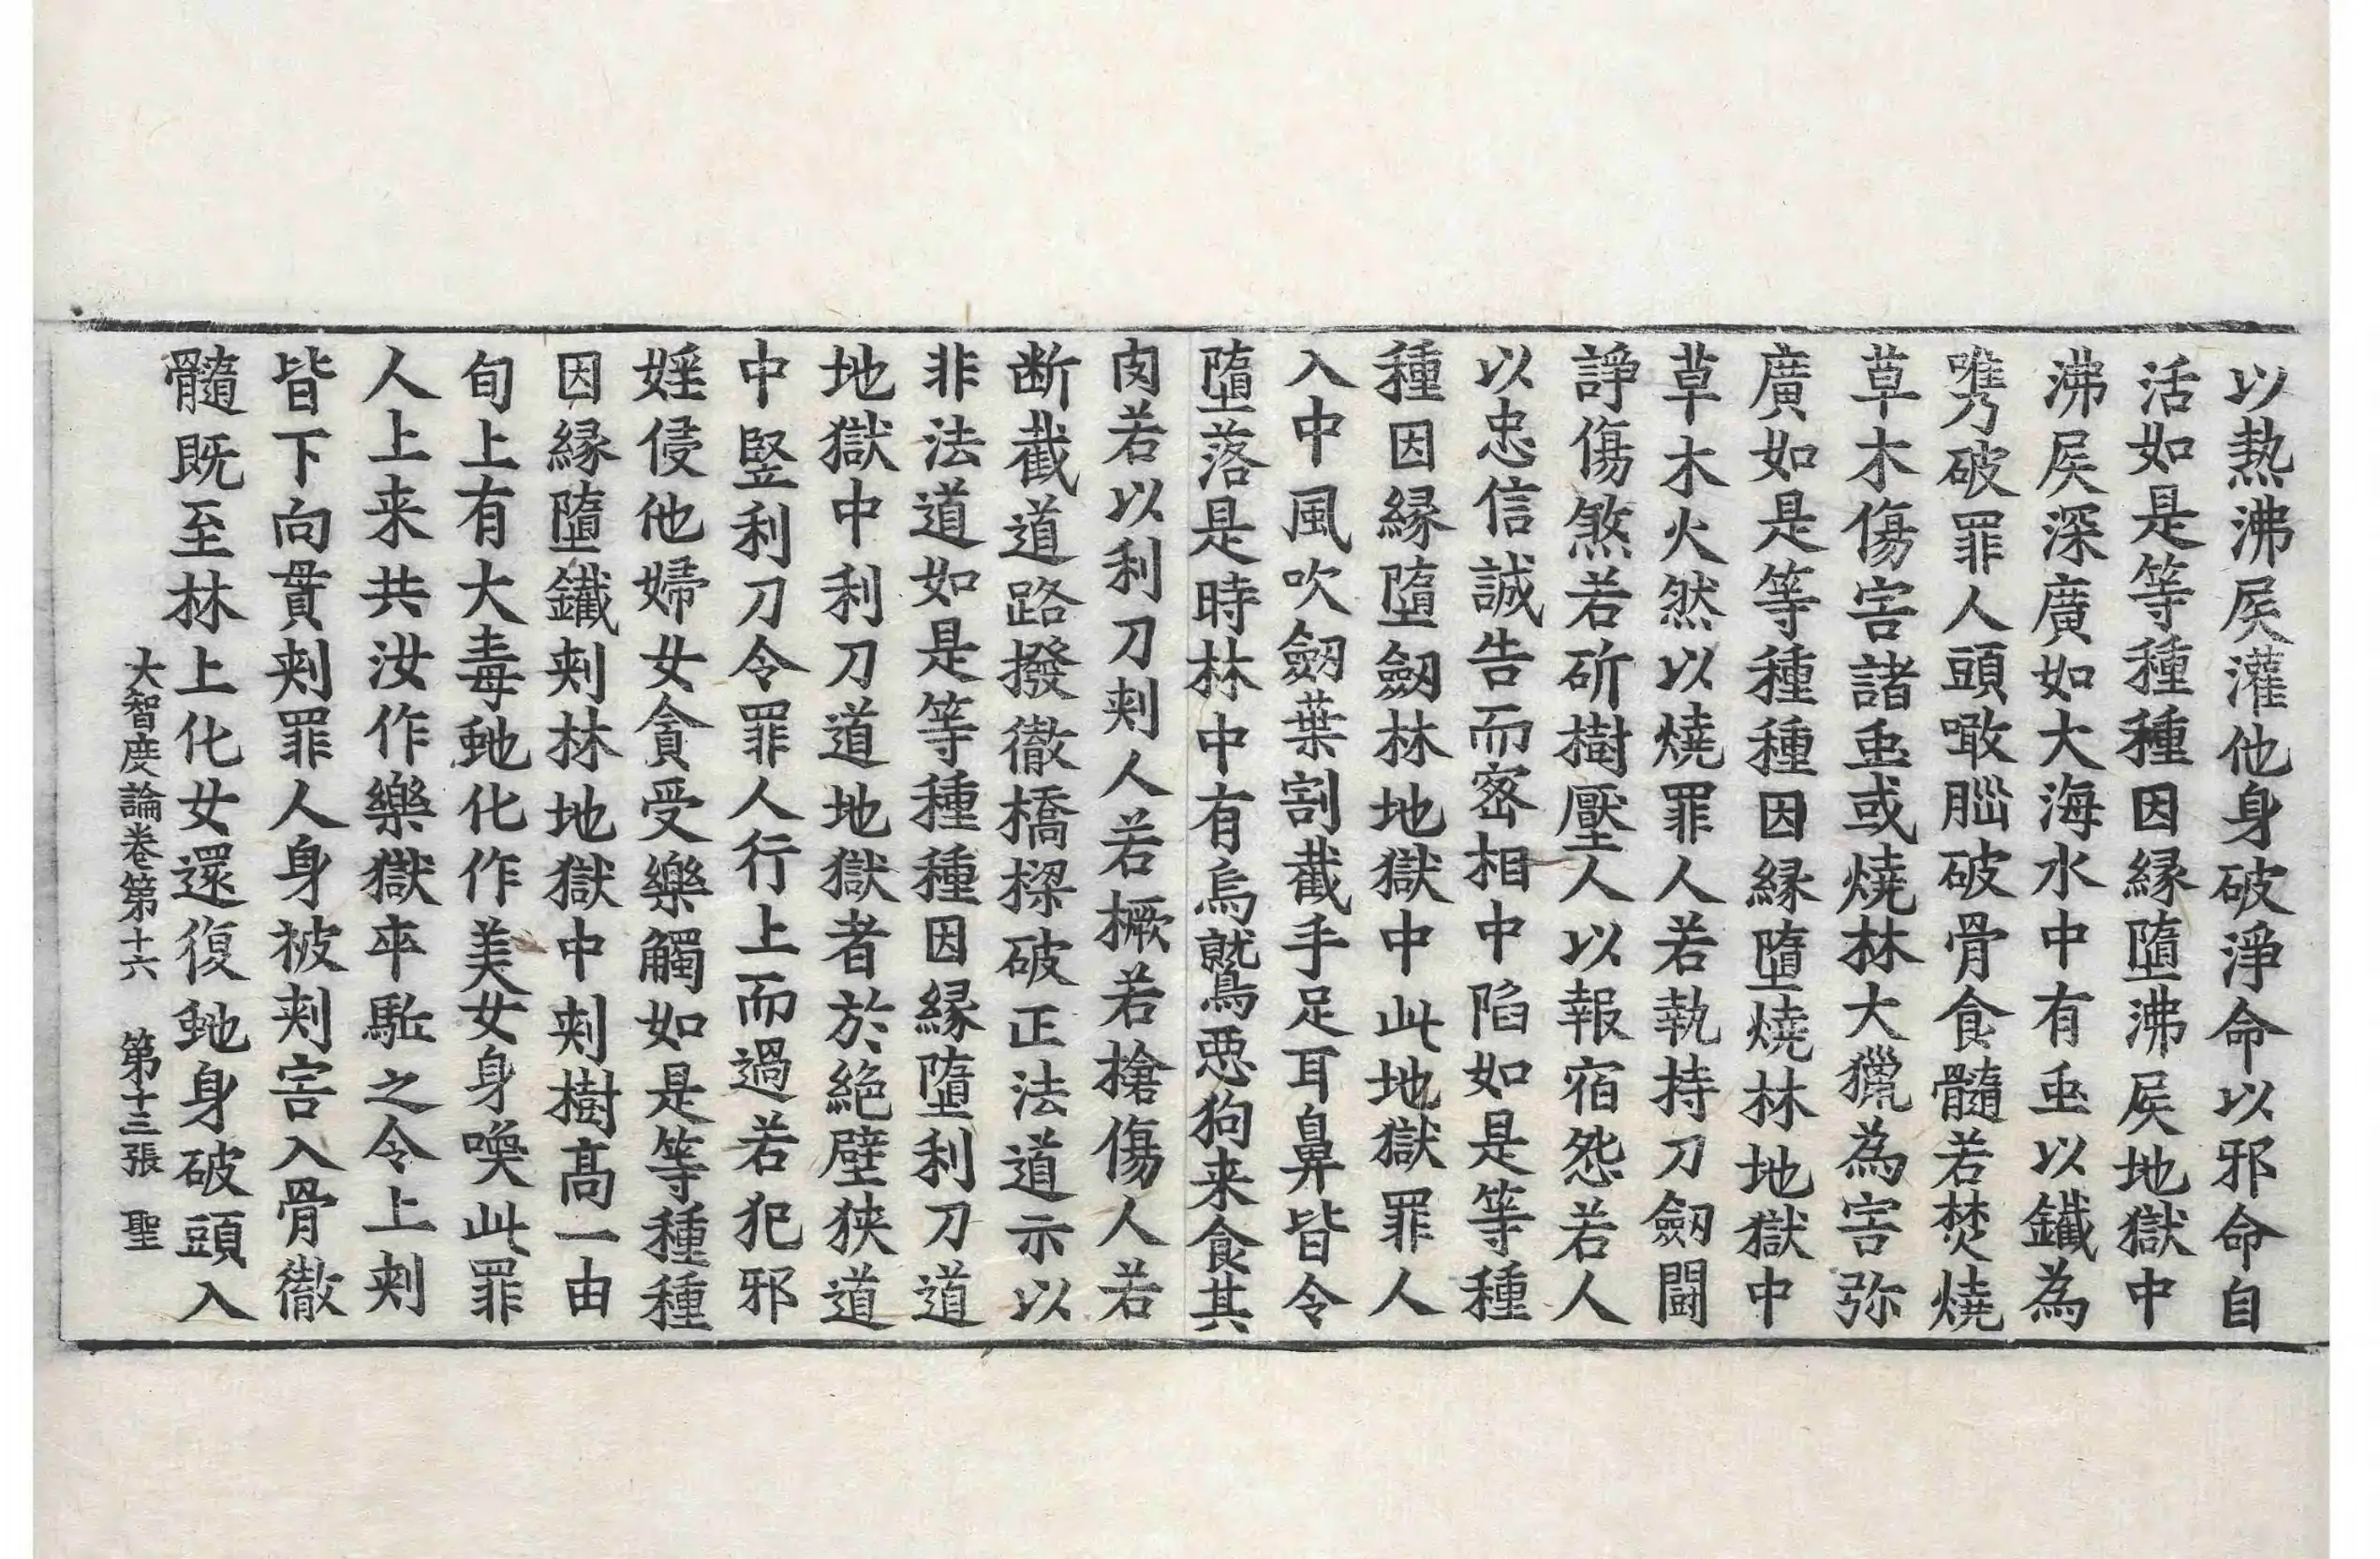 以熱沸屎灌他身破淨命以邪命自
活如是等種種因縁墮沸屎地獄中
沸屎深廣如大海水中有䖝以鐵為
㗱破罪人頭噉𦛁破骨食髓若焚燒
草木傷害諸䖝或燒林大獵為害弥
廣如是等種種因縁墮燒林地獄中
草木火然以燒罪人若執持刀劒鬪
諍傷煞若斫樹壓人以報宿怨若人
以忠信誠告而宻相中陷如是等種
種因縁墮劒林地獄中此地獄罪人
入中風吹劒葉割截手足耳鼻皆令
墮落是時林中有烏鷲悪狗来食其
肉若以利刀刺人若橛若搶傷人若
断截道路撥徹橋樑破正法道示以
非法道如是等種種因縁墮利刀道
地獄中利刀道地獄者於絶壁狹道
中竪利刀令罪人行上而過若犯邪
婬侵他婦女貪受樂觸如是等種種
因縁墮鐵刺林地獄中刺樹髙一由
旬上有大毒虵化作美女身喚此罪
人上来共汝作樂獄卒駈之令上刺
皆下向貫刺罪人身被刺害入骨徹
髓既至林上化女還復虵身破頭入
大智度論卷第十六 第十三張 聖